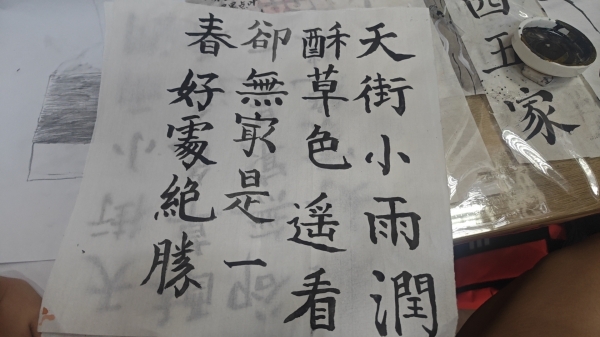 天街小雨潤
酥草色遥看
卻無㝡是一
春好處絶勝
四五
家